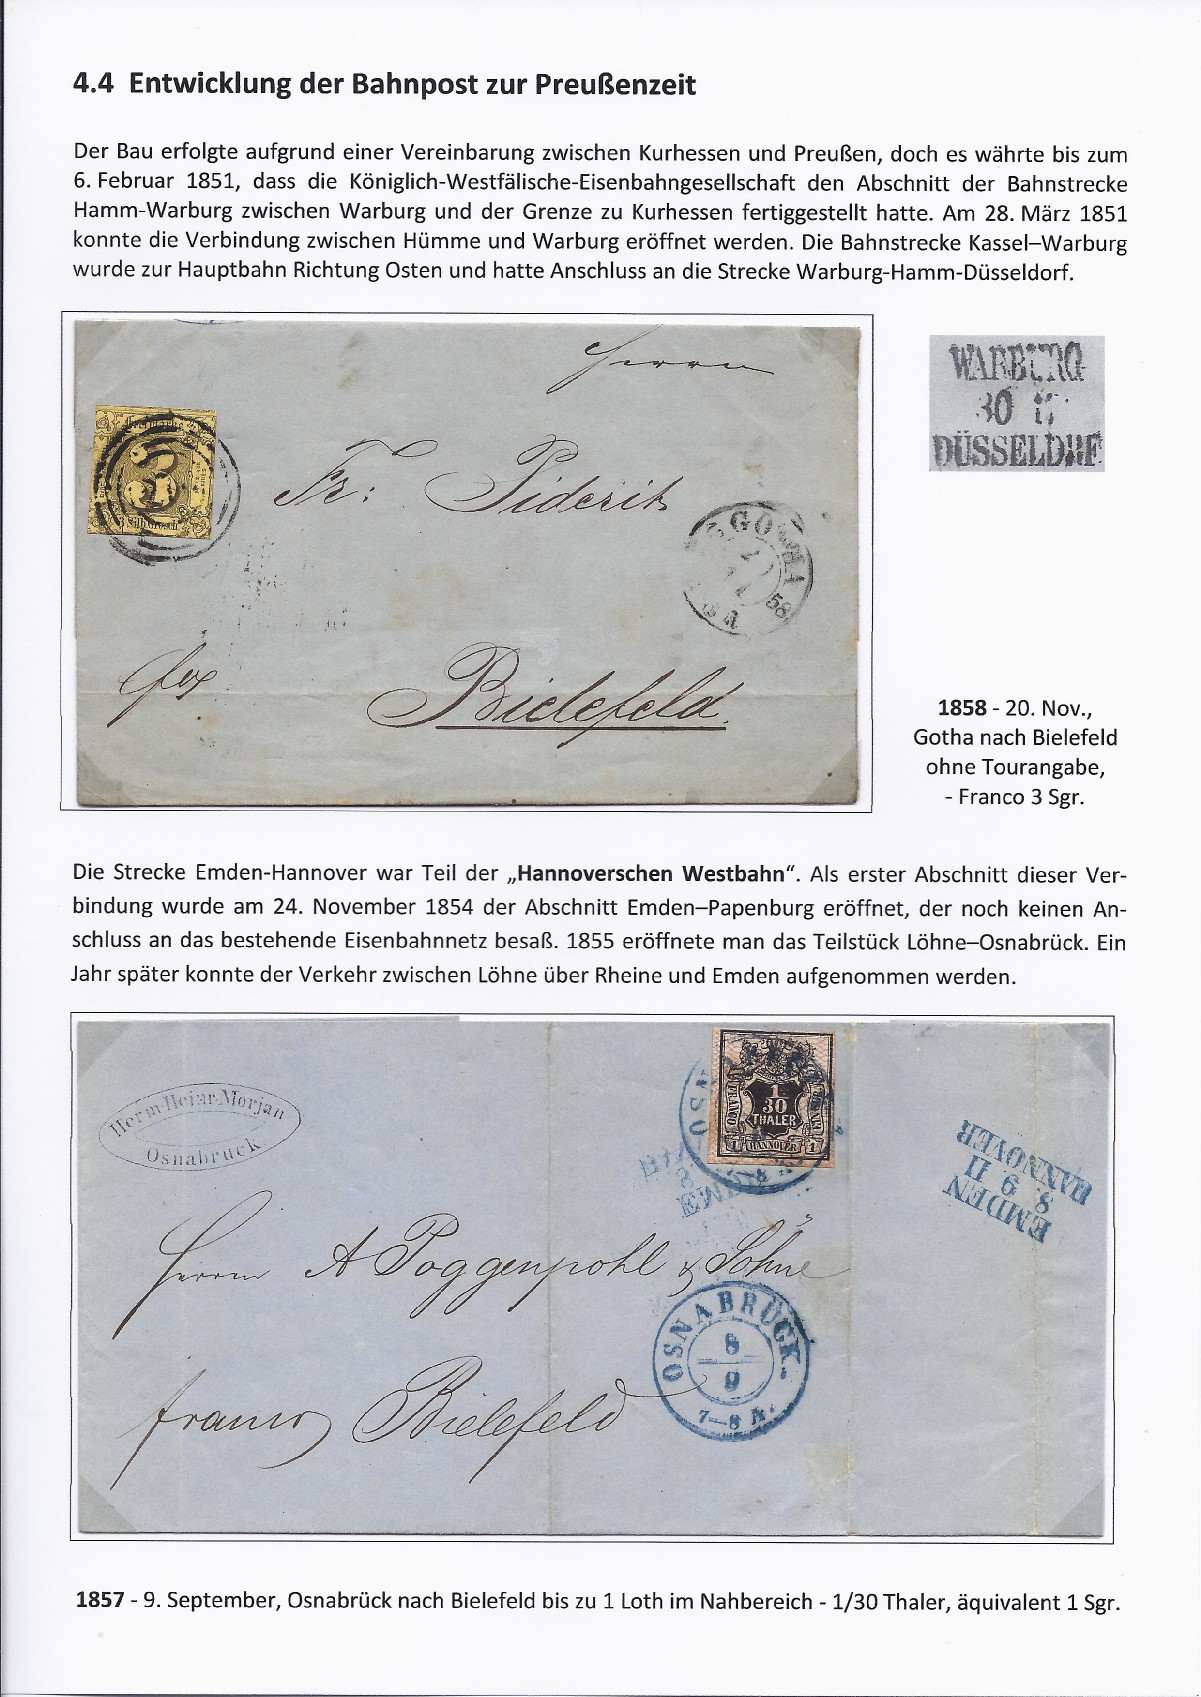 4.4 Entwicklung der Bahnpost zur Preußenzeit
Der Bau erfolgte aufgrund einer Vereinbarung zwischen Kurhessen und Preußen, doch es währte bis zum
6. Februar 1851, dass die Königlich-Westfälische-Eisenbahngesellschaft den Abschnitt der Bahnstrecke
Hamm-Warburg zwischen Warburg und der Grenze zu Kurhessen fertiggestellt hatte. Am 28. März 1851
konnte die Verbindung zwischen Hümme und Warburg eröffnet werden. Die Bahnstrecke Kassel–Warburg
wurde zur Hauptbahn Richtung Osten und hatte Anschluss an die Strecke Warburg-Hamm-Düsseldorf.
Herrn
Fr: Piderit
Bielefeld.
GOTHA
58
3 Silb. Grosch
WARBURG
30 11
DÜSSELDRF
1858 - 20. Nov.,
Gotha nach Bielefeld
ohne Tourangabe,
- Franco 3 Sgr.
Die Strecke Emden-Hannover war Teil der „Hannoverschen Westbahn“. Als erster Abschnitt dieser Ver-
bindung wurde am 24. November 1854 der Abschnitt Emden–Papenburg eröffnet, der noch keinen An-
schluss an das bestehende Eisenbahnnetz besaß. 1855 eröffnete man das Teilstück Löhne–Osnabrück. Ein
Jahr später konnte der Verkehr zwischen Löhne über Rheine und Emden aufgenommen werden.
Herm. Heinr. Morjan
Osnabrück
FRANCO
1
30
THALER
1 HANNOVER 1
EMDEN
8 9 II
HANNOVER
Herrn A Poggenpohl & Söhne
franco Bielefeld
OSNABRÜCK.
8
9
7–8 A.
1857 - 9. September, Osnabrück nach Bielefeld bis zu 1 Loth im Nahbereich - 1/30 Thaler, äquivalent 1 Sgr.